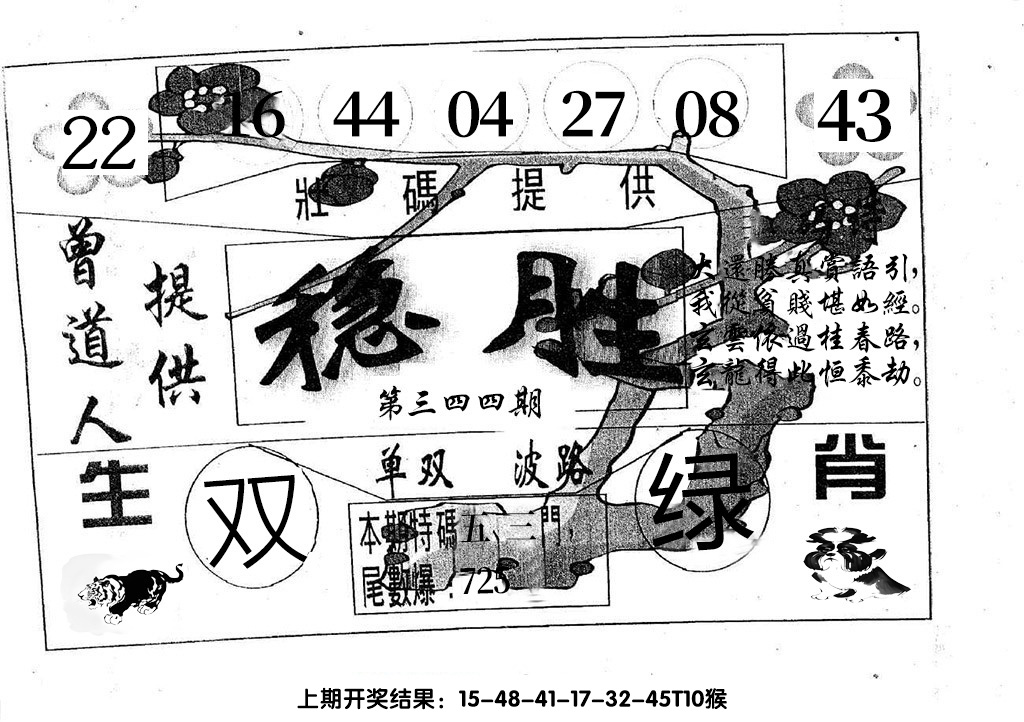 22 16 44 04 27 08 43
壯碼提供
曾道人
提供
稳胜
第三四四期
大還勝真賞語引，
我從貧賤堪如經。
玄雲依過桂春路，
玄龍得此恒黍劫。
单双 波路
生
双
绿
肖
本期特碼五、三門，
尾數爆：725
上期开奖结果：15-48-41-17-32-45T10猴